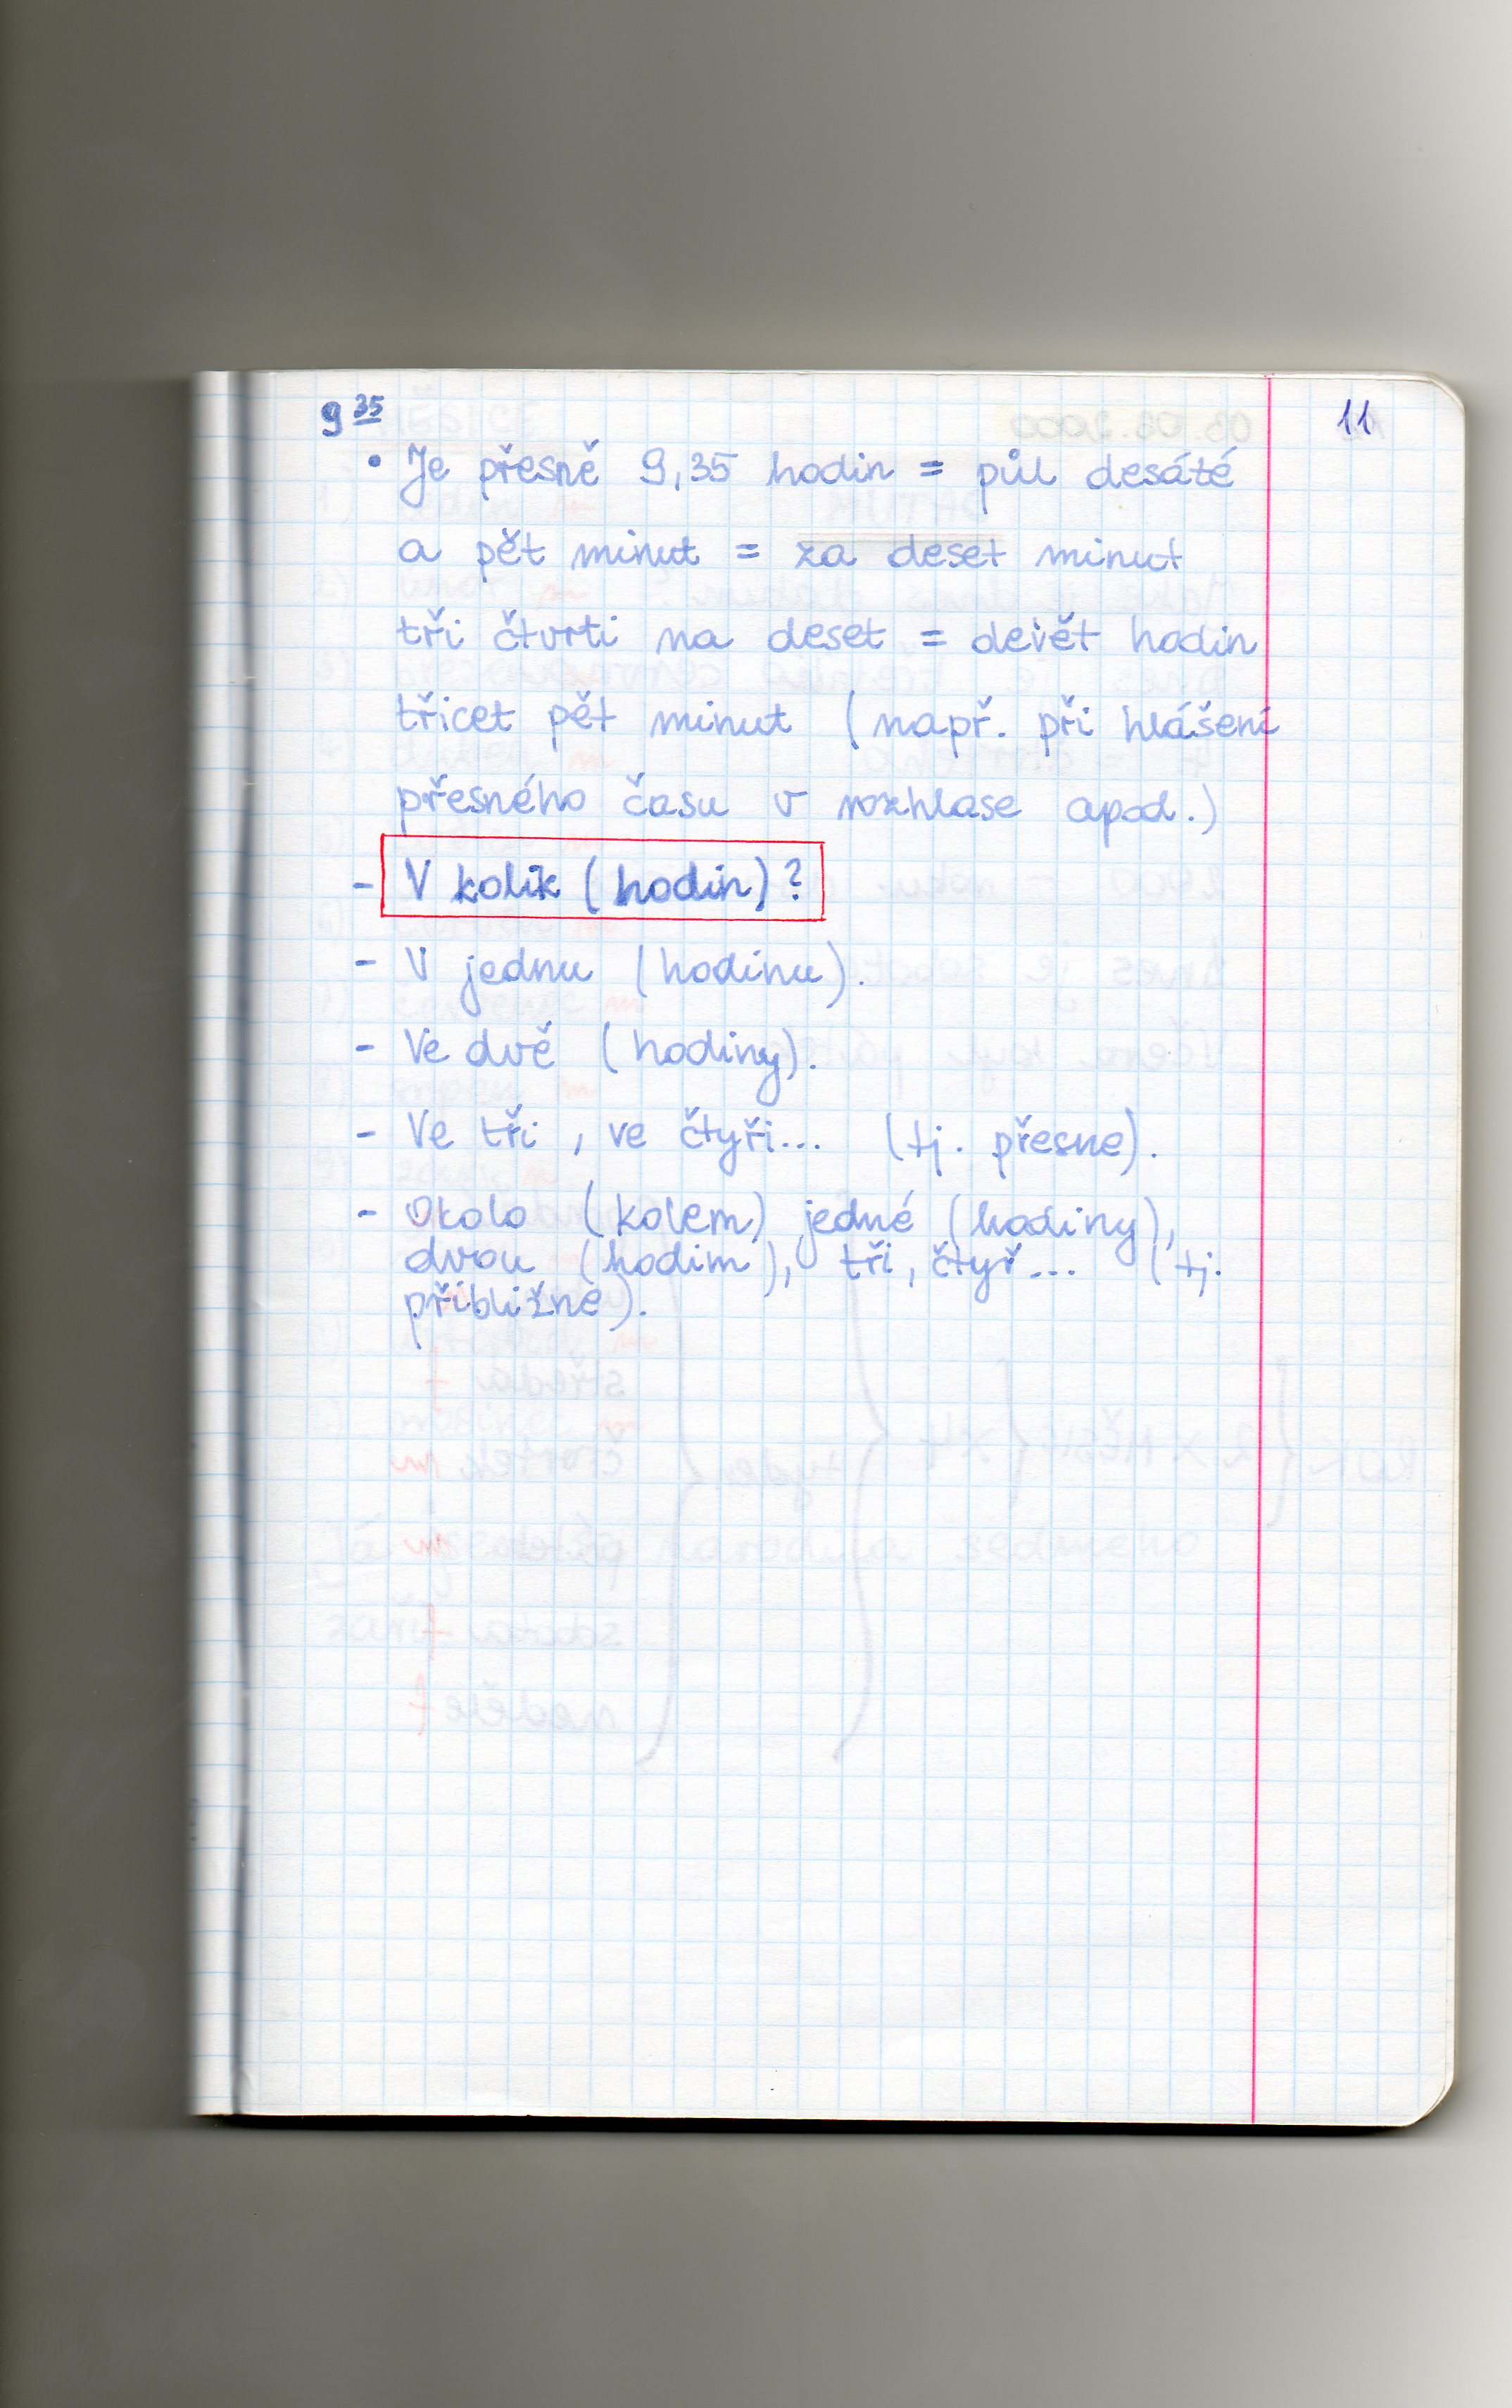 11
9 35
• Je přesně 9,35 hodin = půl desáté
a pět minut = za deset minut
tři čtvrti na deset = devět hodin
třicet pět minut (např. při hlášení
přesného času v rozhlase apod.)
- V kolik (hodin)?
- V jednu (hodinu).
- Ve dvě (hodiny).
- Ve tři, ve čtyři... (tj. přesne).
- Okolo (kolem) jedné (hodiny),
dvou (hodim), tři, čtyř... (tj.
přibližně).